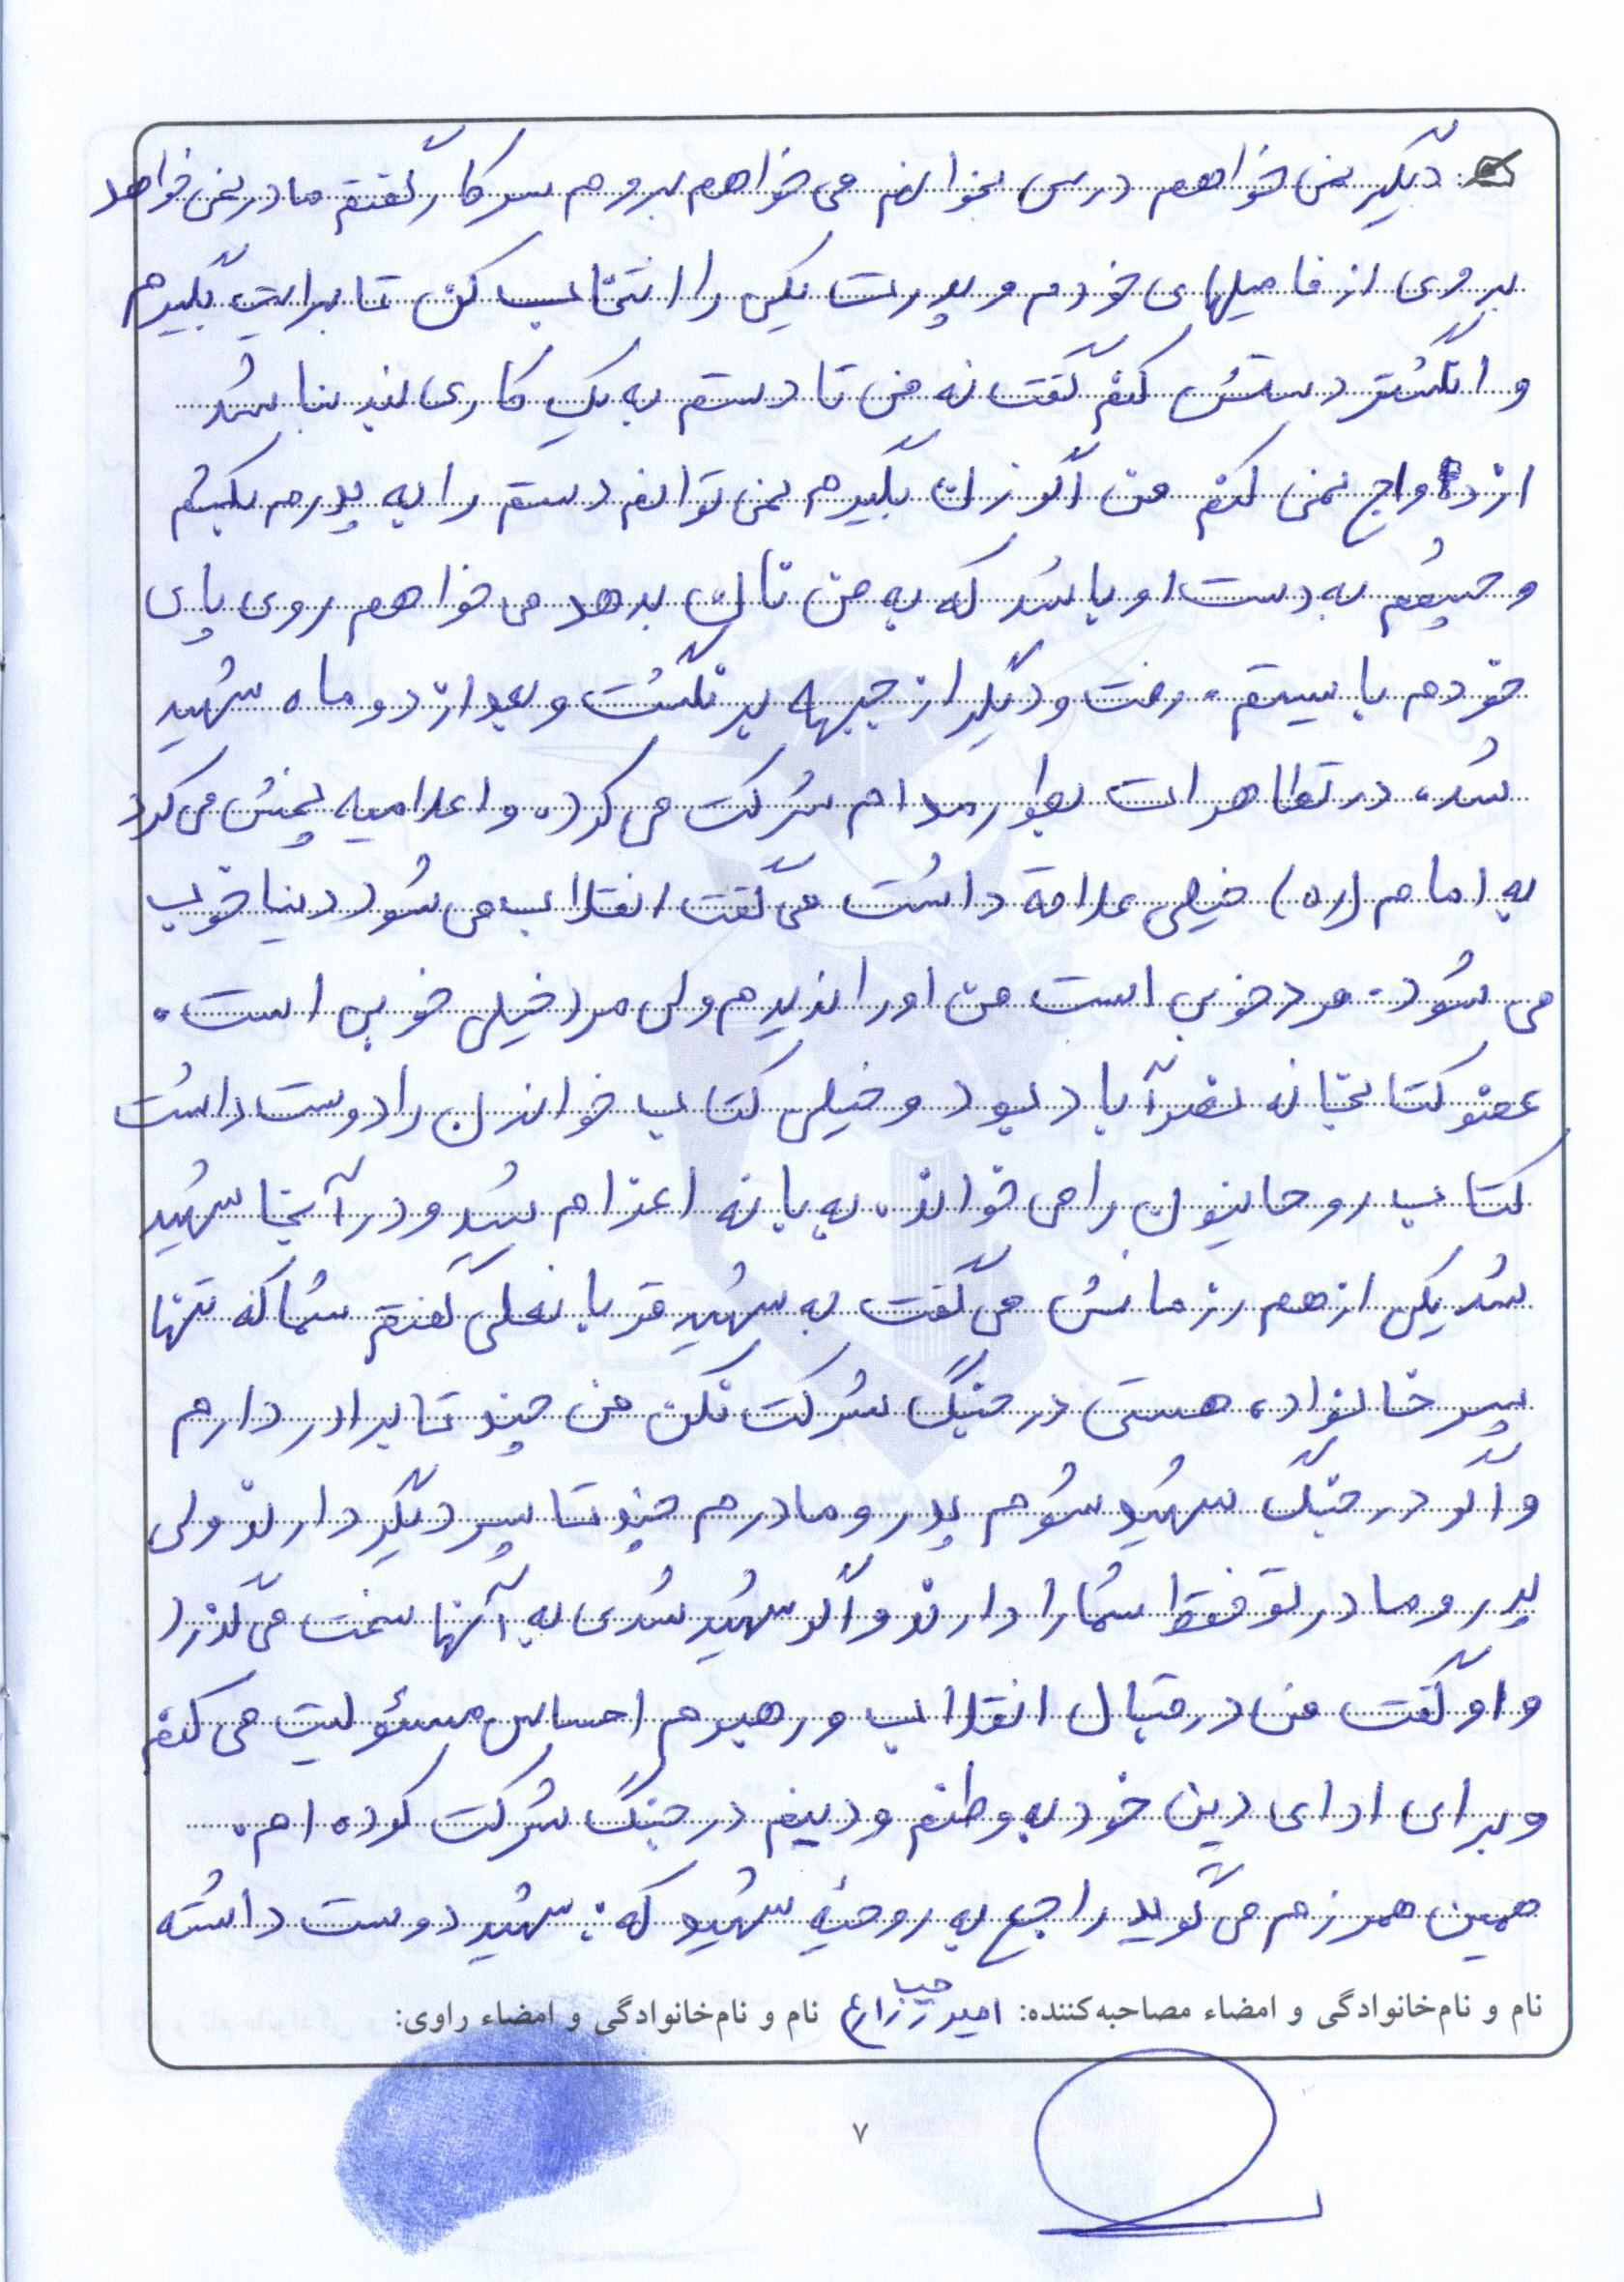 دیگر نمی خواهم درس بخوانم می خواهم بروم سر کار گفتم مادر نمی خواهد
بروی از فامیلهای خودم و پدرت یکی را انتخاب کن تا برایت بگیرم
و انگشتر دستش کنم گفت نه من تا دستم به یک کاری بند نباشد
ازدواج نمی کنم من اگر زن بگیرم نمی توانم دستم را به پدرم بکشم
و چشمم به دست او باشد که به من نان بدهد می خواهم روی پای
خودم بایستم. رفت و دیگر از جبهه برنگشت و بعد از دو ماه شهید
شد، در تظاهرات بطور مدام شرکت می کرد. و اعلامیه پخش می کرد
به امام (ره) خیلی علاقه داشت می گفت انقلاب می شود دنیا خوب
می شود. مرد خوبی است من او را ندیدم ولی مرد خیلی خوبی است.
عضو کتابخانه نصرآباد بود و خیلی کتاب خواندن را دوست داشت
کتاب روحانیون را می خواند. به بانه اعزام شد و در آنجا شهید
شد یکی از هم رزمانش می گفت به شهید قربانعلی گفتم شما که تنها
پسر خانواده هستی در جنگ شرکت نکن من چند تا برادر دارم
و اگر در جنگ شهید شوم پدر و مادرم چند تا پسر دیگر دارند ولی
پدر و مادر تو فقط شما را دارند و اگر شهید شدی به آنها سخت می گذرد
و او گفت من در قبال انقلاب و رهبرم احساس مسئولیت می کنم
و برای ادای دین خود به وطنم و دینم در جنگ شرکت کرده ام.
همین همرزم می گوید راجع به روحیه شهید که: شهید دوست داشته
نام و نام‌خانوادگی و امضاء مصاحبه‌کننده: امیر زارع نام و نام‌خانوادگی و امضاء راوی:
۷